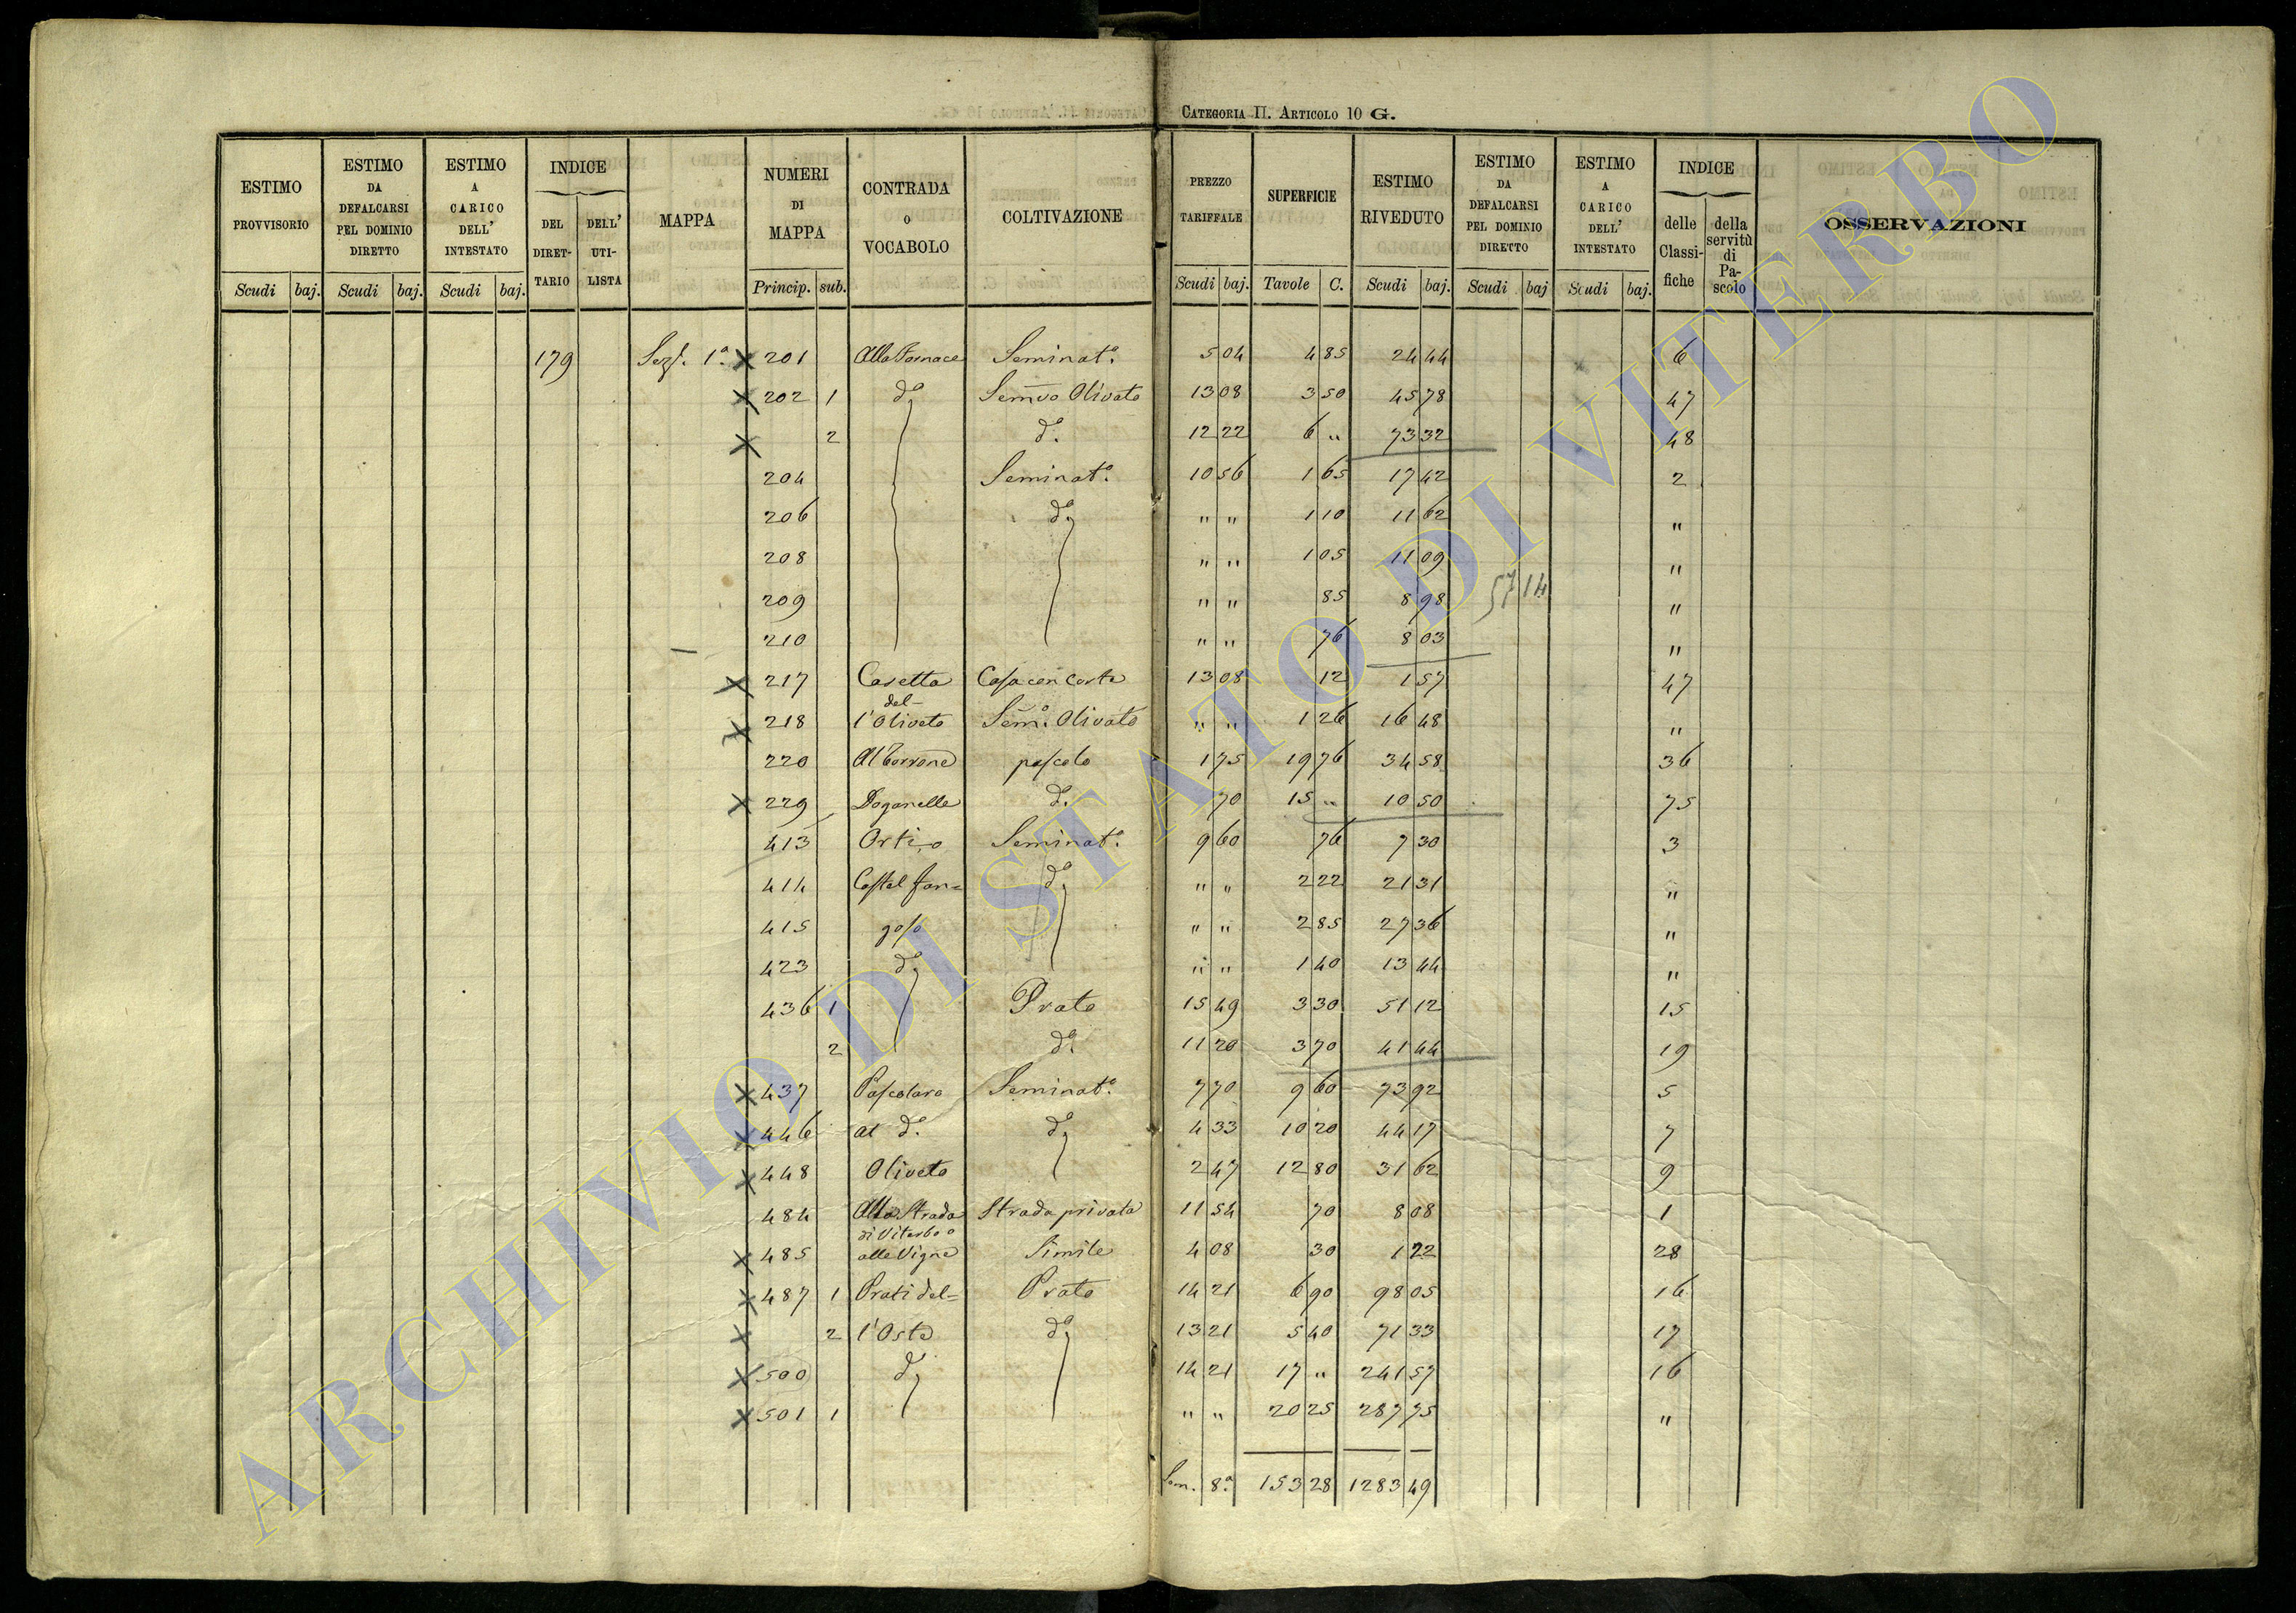 CATEGORIA II. ARTICOLO 10 G.
ESTIMO PROVVISORIO | ESTIMO DA DEFALCARSI PEL DOMINIO DIRETTO | ESTIMO A CARICO DELL' INTESTATO | INDICE DEL DIRET-TARIO | DELL' UTI-LISTA | MAPPA | NUMERI DI MAPPA | CONTRADA O VOCABOLO | COLTIVAZIONE | PREZZO TARIFFALE | SUPERFICIE | ESTIMO RIVEDUTO | ESTIMO DA DEFALCARSI PEL DOMINIO DIRETTO | ESTIMO A CARICO DELL' INTESTATO | INDICE delle Classi-fiche | della servitù di Pa-scolo | OSSERVAZIONI
Scudi | baj. | Scudi | baj. | Scudi | baj. | Princip. | sub. | Scudi | baj. | Tavole | C. | Scudi | baj. | Scudi | baj | Scudi | baj.
179 | Sezf. 1ª | x 201 | Alla Fornace | Seminat.º | 5 04 | 4 85 | 24 44 | 6
x 202 1 | dº | Semvo Olivato | 13 08 | 3 50 | 45 78 | 47
x 2 | dº. | 12 22 | 6 " | 73 32 | 48
204 | Seminat.º | 10 56 | 1 65 | 17 42 | 2
206 | dº | " " | 1 10 | 11 62 | "
208 | " " | 1 05 | 11 09 | "
209 | " " | 85 | 8 98 | 57 14 | "
210 | " " | 76 | 8 03 | "
x 217 | Casetta | Casa con Corte | 13 08 | 12 | 1 57 | 47
del-
x 218 | l'Oliveto | Semº. Olivato | " " | 1 26 | 16 48 | "
220 | Al Torrone | pascolo | 1 75 | 19 76 | 34 58 | 36
x 229 | Doganella | dº. | 70 | 15 " | 10 50 | 75
413 | Orti, o | Seminat.º | 9 60 | 76 | 7 30 | 3
414 | Castel fan= | dº | " " | 2 22 | 21 31 | "
415 | goso | " " | 2 85 | 27 36 | "
423 | dº | " " | 1 40 | 13 44 | "
436 1 | Prato | 15 49 | 3 30 | 51 12 | 15
2 | dº. | 11 20 | 3 70 | 41 44 | 19
x 437 | Pascolaro | Seminat.º | 7 70 | 9 60 | 73 92 | 5
x 446 | al dº. | dº | 4 33 | 10 20 | 44 17 | 7
x 448 | Oliveto | 2 47 | 12 80 | 31 62 | 9
484 | Alla Strada | Strada privata | 11 54 | 70 | 8 08 | 1
di Viterbo o
x 485 | alle Vigne | Simile | 4 08 | 30 | 1 22 | 28
x 487 1 | Prati del= | Prato | 14 21 | 6 90 | 98 05 | 16
x 2 | l'Oste | dº | 13 21 | 5 40 | 71 33 | 17
x 500 | dº | 14 21 | 17 " | 241 57 | 16
x 501 1 | " " | 20 25 | 287 75 | "
Som. 8ª. | 153 28 | 1283 49
ARCHIVIO DI STATO DI VITERBO